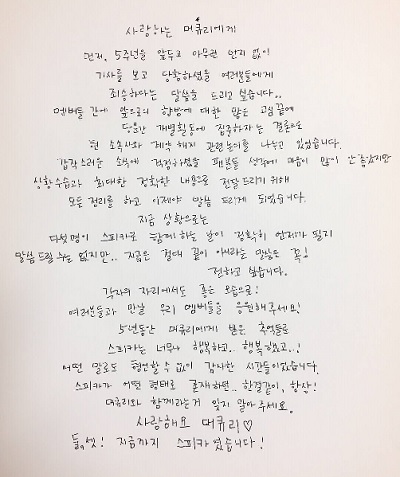 사랑하는 머큐리에게
먼저, 5주년을 앞두고 아무런 언지 없이
기사를 보고 당황하셨을 여러분들에게
죄송하다는 말씀을 드리고 싶습니다..
멤버들 간에 앞으로의 향방에 대한 많은 고심 끝에
당분간 개별활동에 집중하자는 결론으로
현 소속사와 계약 해지 관련 논의를 나누고 있었습니다.
갑작스러운 소식에 걱정하셨을 팬분들 생각에 마음이 많이 안 좋았지만
상황수습과 최대한 정확한 내용으로 전달 드리기 위해
모든 정리를 하고 이제야 말씀 드리게 되었습니다.
지금 상황으로는
다섯명이 스피카로 함께하는 날이 정확히 언제가 될지
말씀 드릴 수는 없지만.. 지금은 절대 끝이 아니라는 말씀은 꼭!
전하고 싶습니다.
각자의 자리에서도 좋은 모습으로!
여러분들과 만날 우리 멤버들을 응원해주세요!
5년동안 머큐리에게 받은 추억들로
스피카는 너무나 행복하고.. 행복했고..!
어떤 말로도 형언할 수 없이 감사한 시간들이었습니다.
스피카가 어떤 형태로 존재하던.. 한결같이, 항상!
머큐리와 함께라는거 잊지 말아 주세요.
사랑해요 머큐리♡
둘,셋! 지금까지 스피카였습니다!